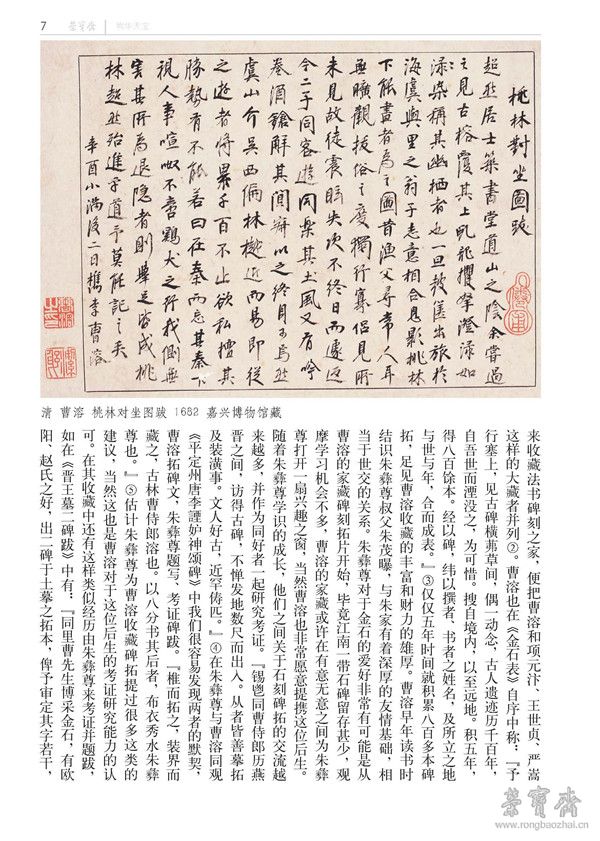 7
荣宝斋
桃林對坐圖跋
超然居士築書堂道山之陰余嘗過
之見古榕覆其上虬龍攫拏澄渌如
染稱其幽栖者也一旦篋出旅於
海虞與里之翁子志意相合見影桃林
下能畫者為之圖昔漁父尋常人耳
無曠觀拔俗之度獨行寡侣見所
未見故徒震眩失次不終日而遽返
今二子同客遊同樂其土風又有吟
卷酒鎗解其間以之終月可焉然
虞山介吳西偏林樾近而易即從
之遊者將累千百不止欲私擅其
勝勢有不能若曰在秦而忘其秦下
視人事喧呶不啻鷄犬之行我側無
害其所為退隱者則舉足皆成桃
林超然殆進乎道予莫能記之矣
辛酉小滿後二日檇李曹溶
清 曹溶 桃林对坐图跋 1682 嘉兴博物馆藏
来收藏法书碑刻之家，便把曹溶和项元汴、王世贞、严嵩
这样的大藏者并列②。曹溶也在《金石表》自序中称：『予
行塞上，见古碑横茀草间，偶一动念，古人遗迹历千百年，
自吾世而湮没之，为可惜。搜自境内，以至远地。积五年，
得八百馀本。经以碑，纬以撰者、书者之姓名，及所立之地
与世与年，合而成表。』③仅仅五年时间就积累八百多本碑
拓，足见曹溶收藏的丰富和财力的雄厚。曹溶早年读书时
结识朱彝尊叔父朱茂曝，与朱家有着深厚的友情基础，相
当于世交的关系。朱彝尊对于金石的爱好非常有可能是从
曹溶的家藏碑刻拓片开始，毕竟江南一带石碑留存甚少，观
摩学习机会不多，曹溶的家藏或许在有意无意之间为朱彝
尊打开一扇兴趣之窗，当然曹溶也非常愿意提携这位后生。
随着朱彝尊学识的成长，他们之间关于石刻碑拓的交流越
来越多，并作为同好者一起研究考证。『锡鬯同曹侍郎历燕
晋之间，访得古碑，不惮发地数尺而出入。从者皆善摹拓
及装潢事。文人好古，近罕俦匹。』④在朱彝尊与曹溶同观
《平定州唐李諲妒神颂碑》中我们很容易发现两者的默契，
曹溶拓碑文，朱彝尊题写、考证碑跋。『椎而拓之，装界而
藏之，古林曹侍郎溶也。以八分书其后者，布衣秀水朱彝
尊也。』⑤估计朱彝尊为曹溶收藏碑拓提过很多这类的
建议，当然这也是曹溶对于这位后生的考证研究能力的认
可。在其收藏中还有这样类似经历由朱彝尊来考证并题跋，
如在《晋王墓二碑跋》中有：『同里曹先生博采金石，有欧
阳、赵氏之好，出二碑于土墓之拓本，俾予审定其字若干，
荣宝斋
www.rongbaozhai.cn